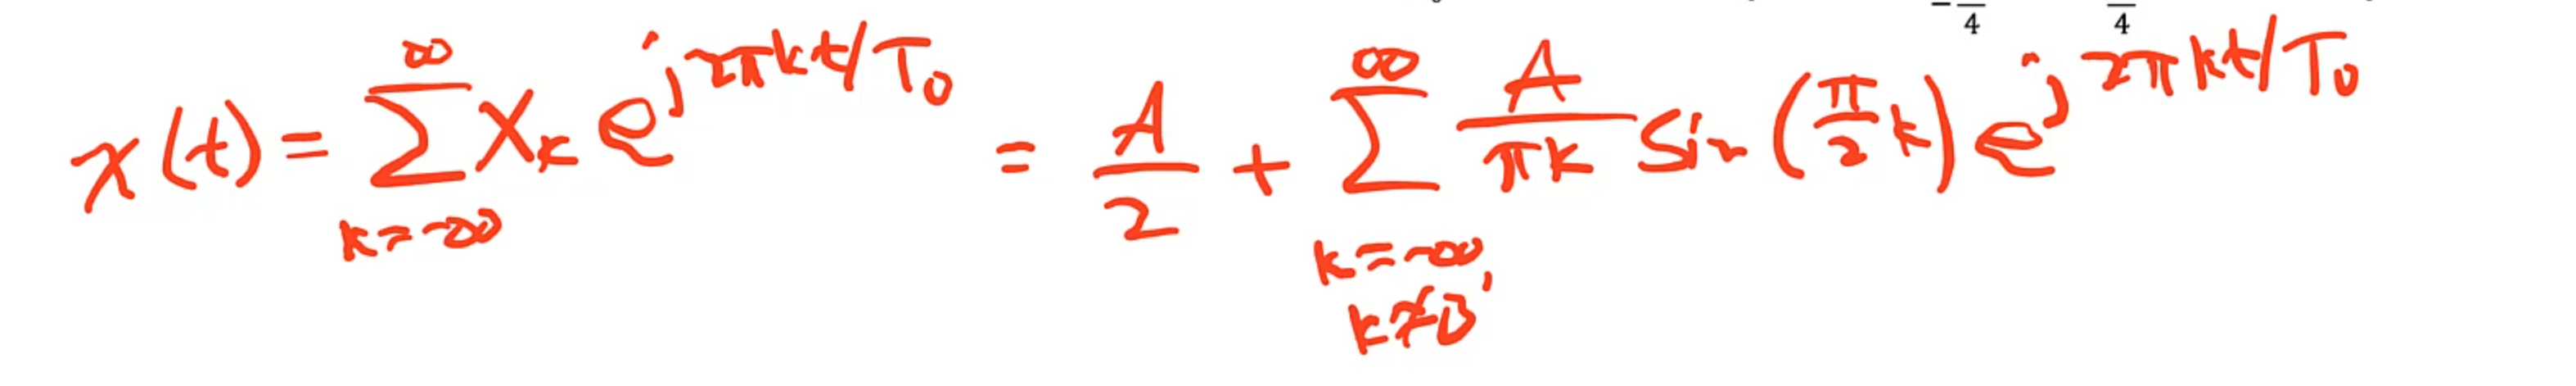 4 4
x(t) = ∑_{k=-∞}^{∞} X_k e^{j2πkt/T_0} = A/2 + ∑_{k=-∞, k≠0}^{∞} A/(πk) sin(π/2 k) e^{j2πkt/T_0}